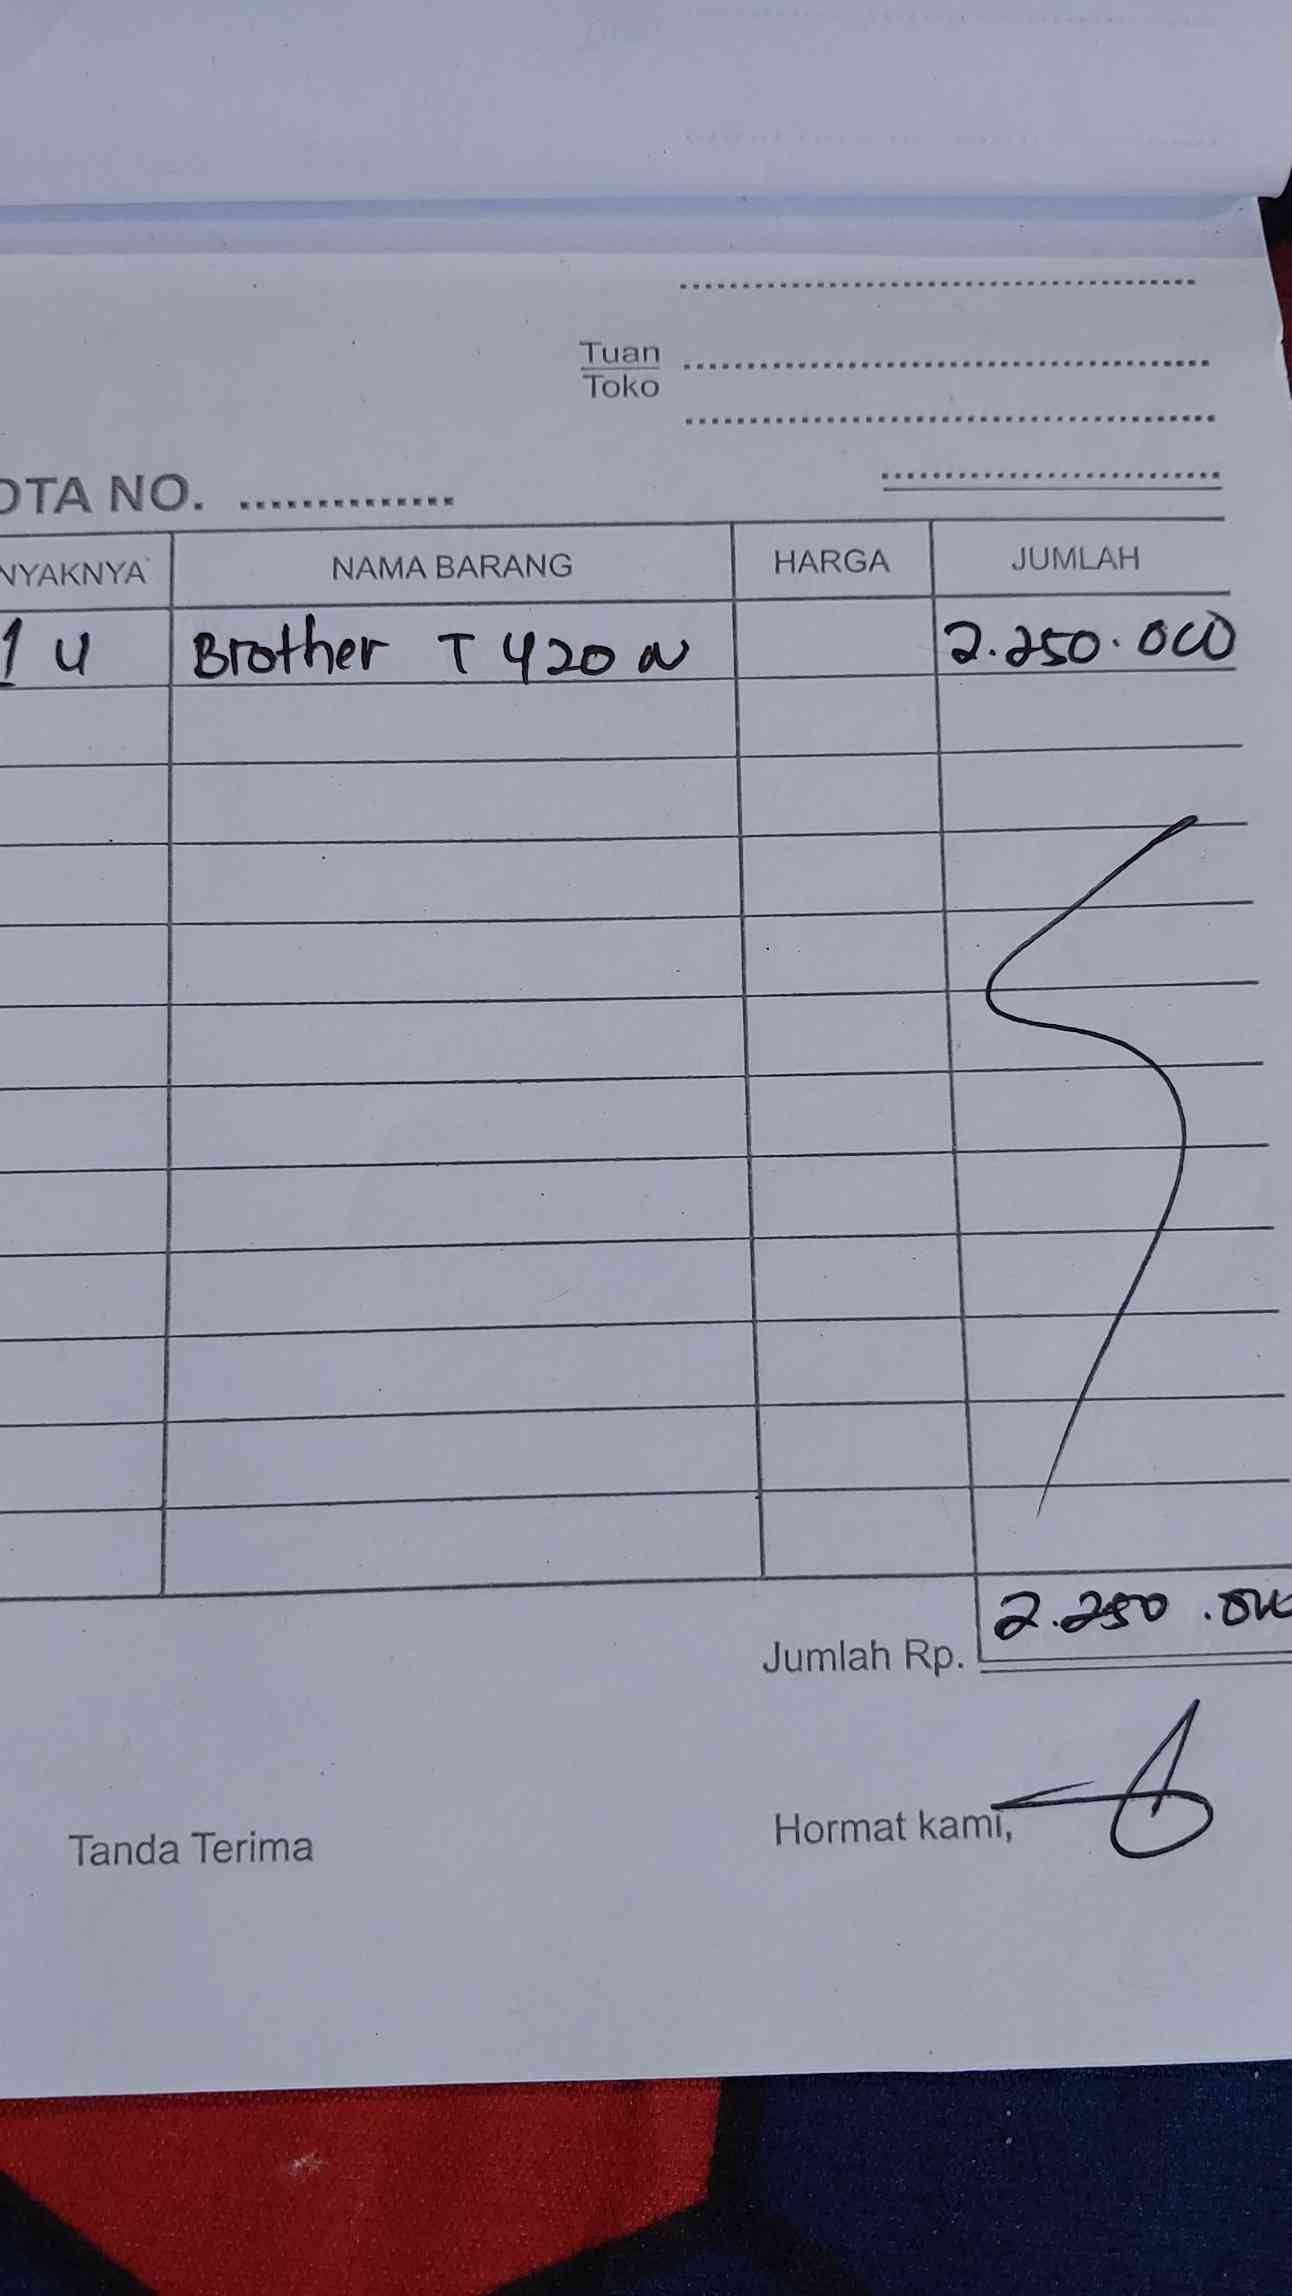 Tuan
Toko
OTA NO.
NYAKNYA NAMA BARANG HARGA JUMLAH
1 U Brother T 420 W 2.250.000
Jumlah Rp. 2.250.000
Tanda Terima Hormat kami,